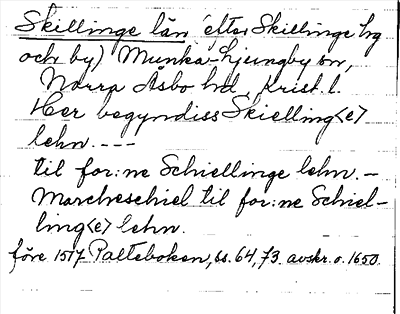 Skillinge län (efter Skillinge hg
och by) Munka-Ljungby sn,
Norra Åsbo hd, Krist. l.
Her begyndiss Skielling<e>
lehn. ----
til for:ne Schiellinge lehn. -
Marcheschiel til for:ne Schiel-
ling<e> lehn.
före 1517 Palteboken, ss. 64, 73. avskr. o. 1650.